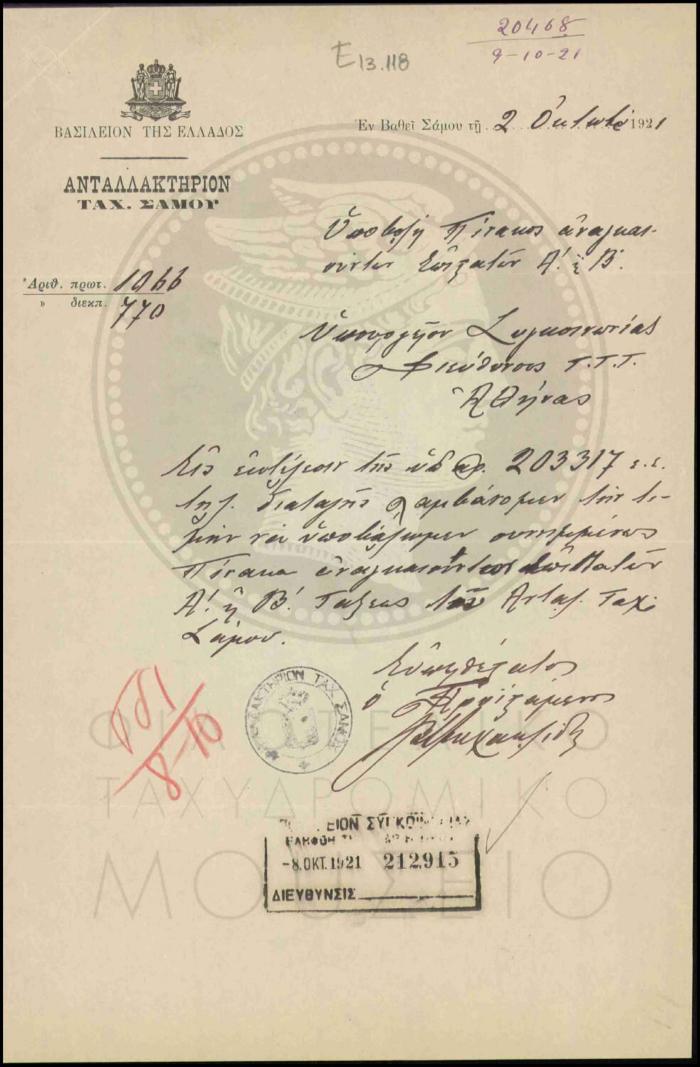 20468
9-10-21
E13.118
ΒΑΣΙΛΕΙΟΝ ΤΗΣ ΕΛΛΑΔΟΣ
Ἐν Βαθεῖ Σάμου τῇ 2 Ὀκτωβρ 1921
ΑΝΤΑΛΛΑΚΤΗΡΙΟΝ
ΤΑΧ. ΣΑΜΟΥ
Ὑποβολὴ Πίνακος
Α! & Β!
Ἀριθ. πρωτ. 1066
» διεκπ. 770
Ὑπουργεῖον Συγκοινωνίας
Διεύθυνσις Τ.Τ.Τ.
Ἀθήνας
Εἰς ἐκτέλεσιν τῆς ὑπ ἀρ. 203317 ε.ἔ.
διαταγῆς λαμβάνομεν τὴν τι-
μὴν νὰ ὑποβάλωμεν συνημμένως
Πίνακα
Α! & Β! Τάξεως τοῦ Ἀνταλ. Ταχ:
Σάμου.
Εὐπειθέστατος
ὁ Προϊστάμενος
ΑΝΤΑΛΛΑΚΤΗΡΙΟΝ ΤΑΧ. ΣΑΜΟΥ
8-10
ΕΙΟΝ ΣΥΓΚΟΙΝ
ΕΛΗΦΘΗ
-8.ΟΚΤ.1921 212915
ΔΙΕΥΘΥΝΣΙΣ
ΦΙΛΟΤΕΛΙΚΟ
ΤΑΧΥΔΡΟΜΙΚΟ
ΜΟΥΣΕΙΟ